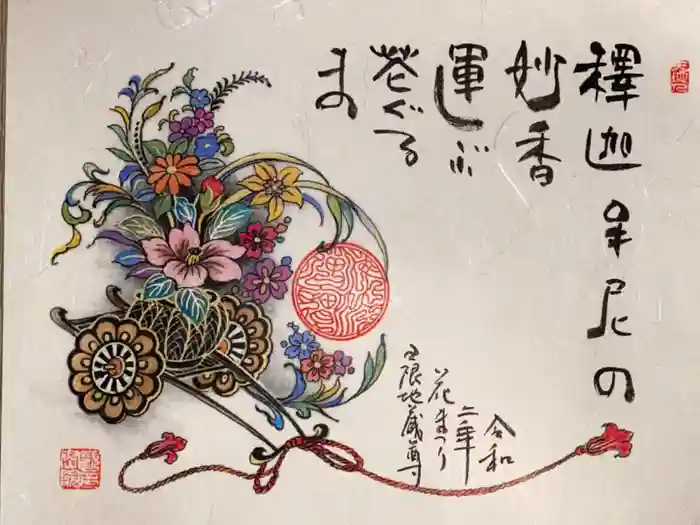 釋迦牟尼の
妙香
運ぶ
花ぐる
ま
令和
二年
花まつり
五限地蔵尊